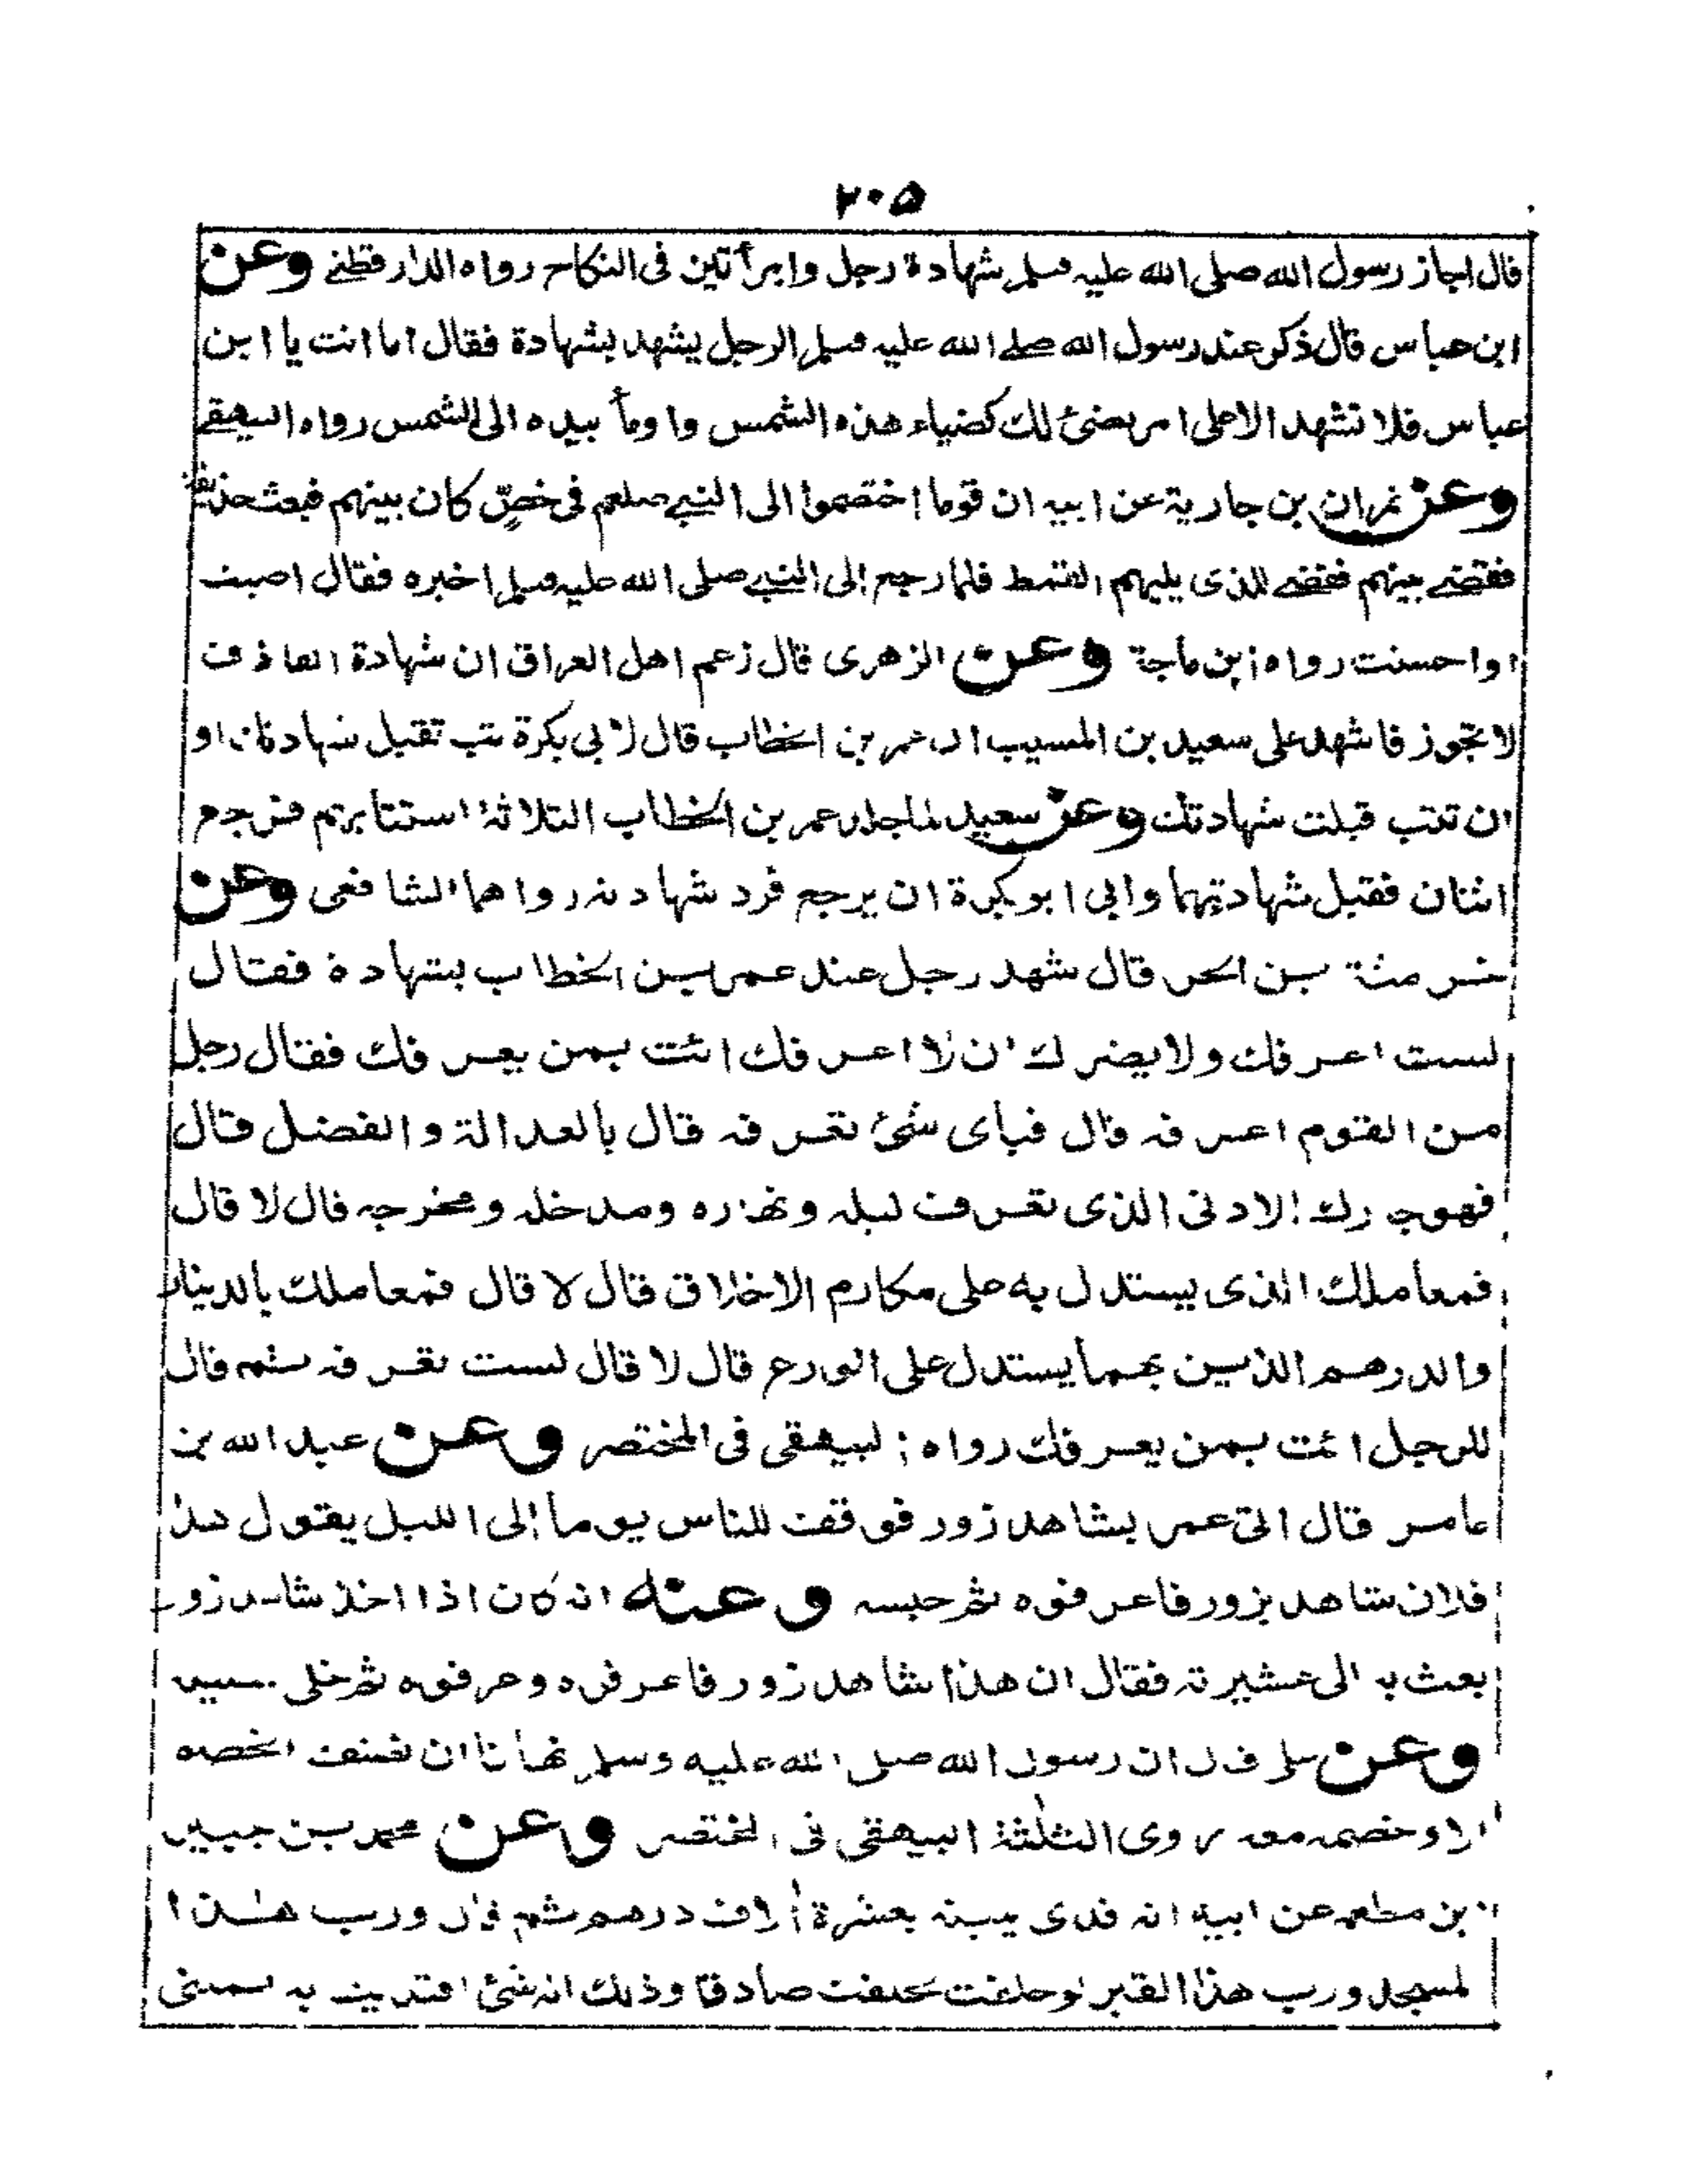 ٢٠٥
قال اجاز رسول الله صلى الله عليه وسلم شهادة رجل وامرأتين فى النكاح رواه الدارقطنے وعن
ابن عباس قال ذكر عند رسول الله صلے الله عليه وسلم الرجل يشهد بشهادة فقال اما انت يا ابن
عباس فلا تشهد الا على امر يضئ لك كضياء هذه الشمس واومأ بيده الى الشمس رواه البيهقے
وعن نمران بن جارية عن ابيه ان قوما اختصموا الى النبے صلعم فى خصٍّ كان بينهم فبعث حذيفة
فقضے بينهم فقضے للذى يليهم القمط فلما رجع الى النبے صلى الله عليه وسلم اخبره فقال اصبت
واحسنت رواه ابن ماجة وعن الزهرى قال زعم اهل العراق ان شهادة القاذف
لا تجوز فاشهد على سعيد بن المسيب ان عمر بن الخطاب قال لابى بكرة تتب تقبل شهادتك او
ان تتب قبلت شهادتك وعن سعيد لما جلد عمر بن الخطاب الثلاثة استتابهم فرجع
اثنان فقبل شهادتهما وابى ابو بكرة ان يرجع فرد شهادته رواهما الشافعى وعن
خرشة بن الحر قال شهد رجل عند عمر بن الخطاب بشهادة فقال
لست اعرفك ولا يضرك ان لا اعرفك ائت بمن يعرفك فقال رجل
من القوم اعرفه قال فبأى شئ تعرفه قال بالعدالة والفضل قال
فهو جارك الادنى الذى تعرف ليله ونهاره ومدخله ومخرجه قال لا قال
فمعاملك الذى يستدل به على مكارم الاخلاق قال لا قال فمعاملك بالدينار
والدرهم الذين بهما يستدل على الورع قال لا قال لست تعرفه ثم قال
للرجل ائت بمن يعرفك رواه البيهقى فى المختصر وعن عبد الله بن
عامر قال اتى عمر بشاهد زور فوقفت للناس يوما الى الليل يقول هذا
فلان شاهد بزور فاعرفوه ثم حبسه وعنه انه كان اذا اخذ شاهد زور
بعث به الى عشيرته فقال ان هذا شاهد زور فاعرفوه وعرفوه ثم خلى سبيله
وعن علے قال ان رسول الله صلى الله عليه وسلم نهانا ان نضيف الخصم
الا وخصمه معه روى الثلثة البيهقى فى المختصر وعن محمد بن جبير
بن مطعم عن ابيه انه فدى يمينه بعشرة الاف درهم ثم قال ورب هذا
المسجد ورب هذا القبر لو حلفت لحلفت صادقا وذلك انه شئ افتديت به يمينى